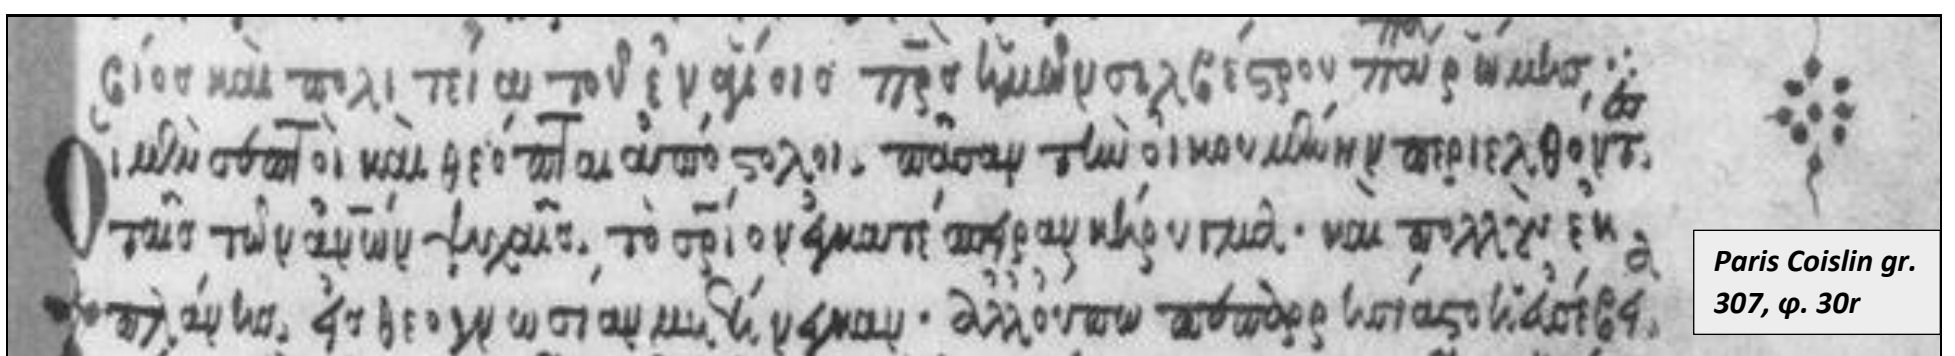 βίος καὶ πολιτεία τοῦ ἐν ἁγίοις πρς ἡμῶν σιλβέστρου πάπα ῥώμης:
Οἱ μὲν σεπτοὶ καὶ θεόπται ἀπόστολοι. πᾶσαν τὴν οἰκουμένην περιελθόντες.
ταῖς τῶν ἀνων ψυχαῖς. τὸ σριον ἐγκατέσπειραν κήρυγμα. καὶ πολλοὺς ἐκ
πλάνης. εἰς θεογνωσίαν μετήνεγκαν. ἀλλ οὔπω
Paris Coislin gr.
307, φ. 30r